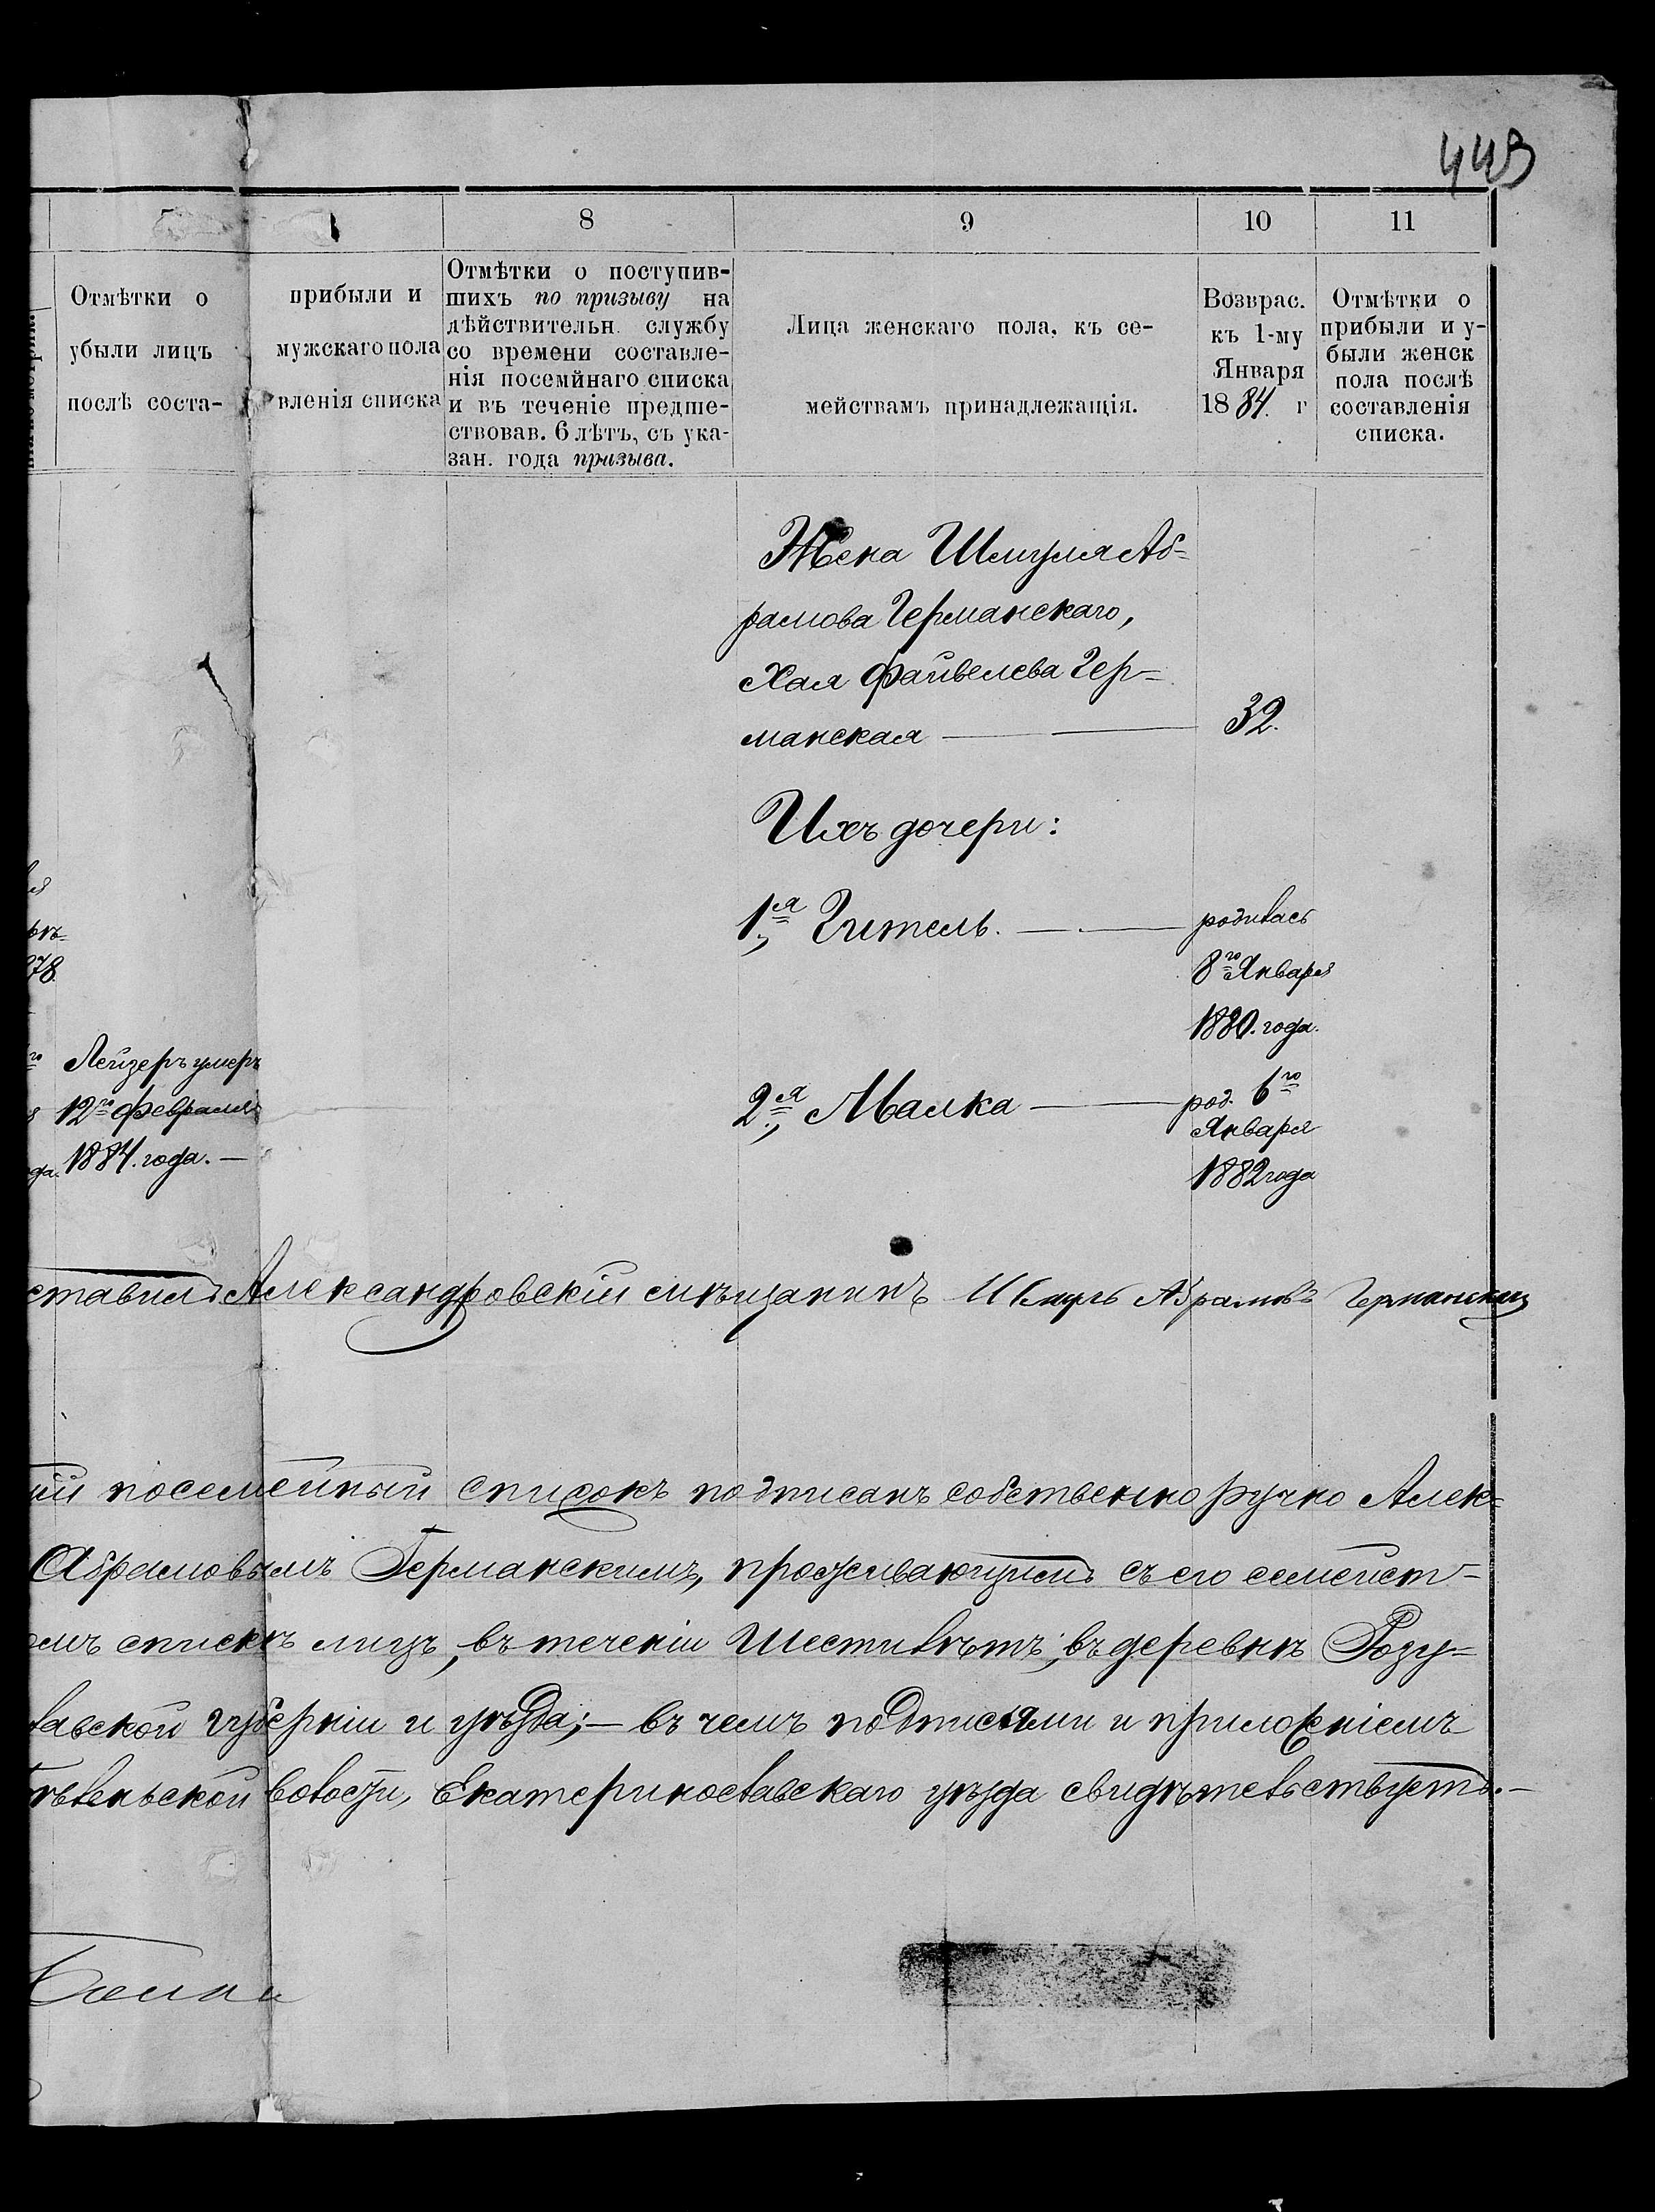 443
8
9
10
11
Отмѣтки о
убыли лицъ
послѣ соста-
прибыли и
мужскаго пола
вленія списка
Отмѣтки о поступив-
шихъ по призыву на
дѣйствительн. службу
со времени составле-
нія посемйнаго списка
и въ теченіе предше-
ствовав. 6 лѣтъ, съ ука-
зан. года призыва.
Лица женскаго пола, къ се-
мействамъ принадлежащія.
Возврас.
къ 1-му
Января
1884. г
Отмѣтки о
прибыли и у-
были женск
пола послѣ
составленія
списка.
Жена Шмуля Аб=
рамова Германскаго,
Хая Файвелева Гер=
манская — 32.
Ихъ дочери:
1.ая Гитель. — родилась
8го Января
1880. года.
78.
Лейзеръ умеръ
12го Февраля
1884. года. —
2.ая Малка — род. 6го
Января
1882 года
ставилъ Александровскій мѣщанинъ Шмуль Абрамовъ Германскій
посемейный списокъ подписанъ собственно ручно Алек=
Абрамовымъ Германскимъ, проживающимъ съ его семейст-
омъ спискѣ лицъ, въ теченіи шести лѣтъ, въ деревнѣ Розу=
лавской губерніи и уѣзда; — въ чемъ подписями и приложеніемъ
волости, Екатеринославскаго уѣзда свидѣтельствуетъ. —